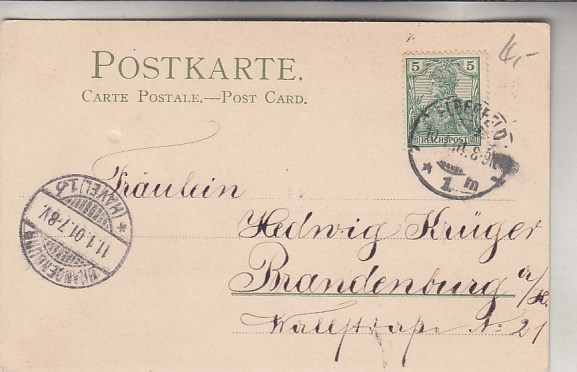 POSTKARTE.
CARTE POSTALE.—POST CARD.
5 5
REICHSPOST
ELBERFELD
1 m
BRANDENBURG (HAVEL) 1.b
11.1.01.7-8V.
Fräulein
Hedwig Krüger
Brandenburg a/H.
Wallstraße No 21